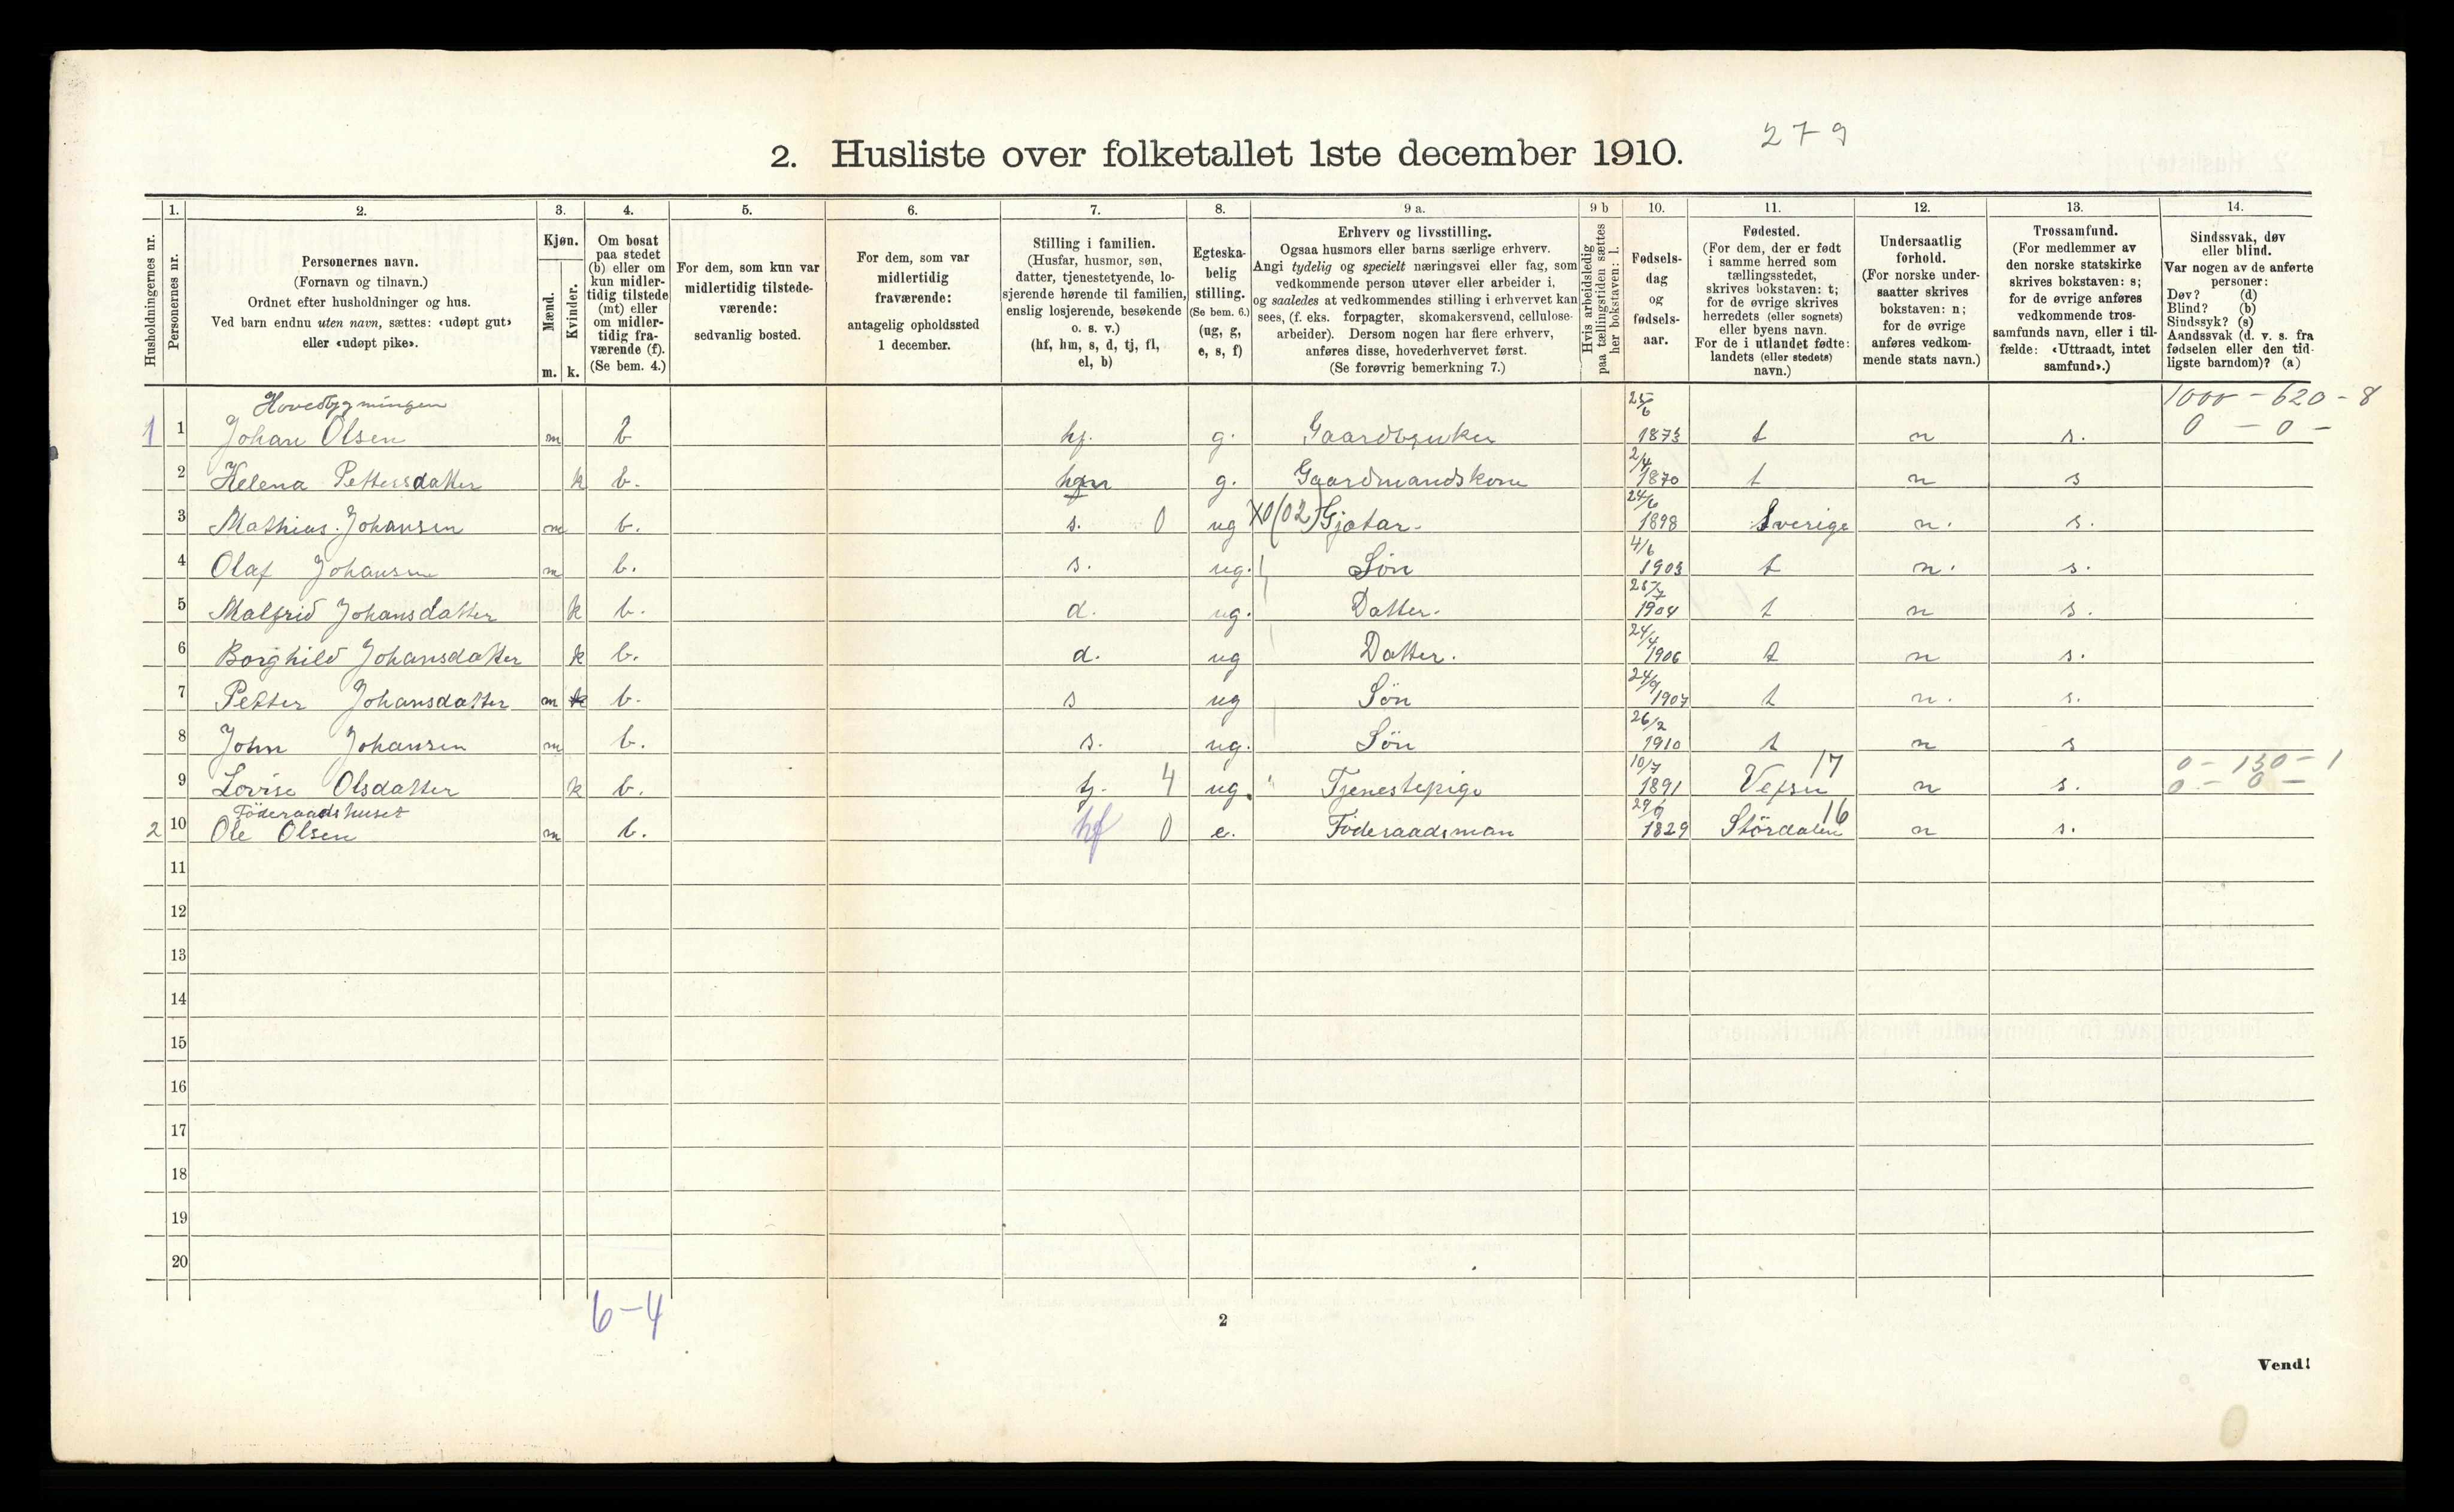 279
2. Husliste over folketallet 1ste december 1910.
1. 2. 3. 4. 5. 6. 7. 8. 9 a. 9 b 10. 11. 12. 13. 14.
Husholdningernes nr.
Personernes nr.
Personernes navn.
(Fornavn og tilnavn.)
Ordnet efter husholdninger og hus.
Ved barn endnu uten navn, sættes: «udøpt gut»
eller «udøpt pike».
Kjøn.
Mænd.
Kvinder.
m. k.
Om bosat
paa stedet
(b) eller om
kun midler-
tidig tilstede
(mt) eller
om midler-
tidig fra-
værende (f).
(Se bem. 4.)
For dem, som kun var
midlertidig tilstede-
værende:
sedvanlig bosted.
For dem, som var
midlertidig
fraværende:
antagelig opholdssted
1 december.
Stilling i familien.
(Husfar, husmor, søn,
datter, tjenestetyende, lo-
sjerende hørende til familien,
enslig losjerende, besøkende
o. s. v.)
(hf, hm, s, d, tj, fl,
el, b)
Egteska-
belig
stilling.
(Se bem. 6.)
(ug, g,
e, s, f)
Erhverv og livsstilling.
Ogsaa husmors eller barns særlige erhverv.
Angi tydelig og specielt næringsvei eller fag, som
vedkommende person utøver eller arbeider i,
og saaledes at vedkommendes stilling i erhvervet kan
sees, (f. eks. forpagter, skomakersvend, cellulose-
arbeider). Dersom nogen har flere erhverv,
anføres disse, hovederhvervet først.
(Se forøvrig bemerkning 7.)
Hvis arbeidsledig
paa tællingstiden sættes
her bokstaven: l.
Fødsels-
dag
og
fødsels-
aar.
Fødested.
(For dem, der er født
i samme herred som
tællingsstedet,
skrives bokstaven: t;
for de øvrige skrives
herredets (eller sognets)
eller byens navn.
For de i utlandet fødte:
landets (eller stedets)
navn.)
Undersaatlig
forhold.
(For norske under-
saatter skrives
bokstaven: n;
for de øvrige
anføres vedkom-
mende stats navn.)
Trossamfund.
(For medlemmer av
den norske statskirke
skrives bokstaven: s;
for de øvrige anføres
vedkommende tros-
samfunds navn, eller i til-
fælde: «Uttraadt, intet
samfund».)
Sindssvak, døv
eller blind.
Var nogen av de anførte
personer:
Døv? (d)
Blind? (b)
Sindssyk? (s)
Aandssvak (d. v. s. fra
fødselen eller den tid-
ligste barndom)? (a)
Hovedbygningen 25/6 1000 - 620 - 8
1 1 Johan Olsen m b hf. g. Gaardbruker 1873 t n s. 0 - 0 -
2 Helena Pettersdatter k b. hm g. Gaardmandskone 2/4 1870 t n s
3 Mathias Johansen m b. s. 0 ug X0(02) Gjætar 24/6 1898 Sverige n. s.
4 Olaf Johansen m b. s. ug. Søn 4/6 1903 t n. s.
5 Malfrid Johansdatter k b. d. ug. Datter. 25/7 1904 t n s.
6 Borghild Johansdatter k b. d. ug Datter. 24/4 1906 t n s.
7 Petter Johansdatter m k b. s ug Søn 24/9 1907 t n. s.
8 John Johansen m b. s. ug. Søn 26/2 1910 t n s
9 Lovise Olsdatter k b. tj. 4 ug. Tjenestepige 10/7 1891 Vefsn 17 n s. 0 - 130 - 1
0 - 0 -
Föderaadshuset
2 10 Ole Olsen m b. hf 0 e. Föderaadsman 29/9 1829 Stördalen 16 n s.
11
12
13
14
15
16
17
18
19
20
6-4
2
Vend!